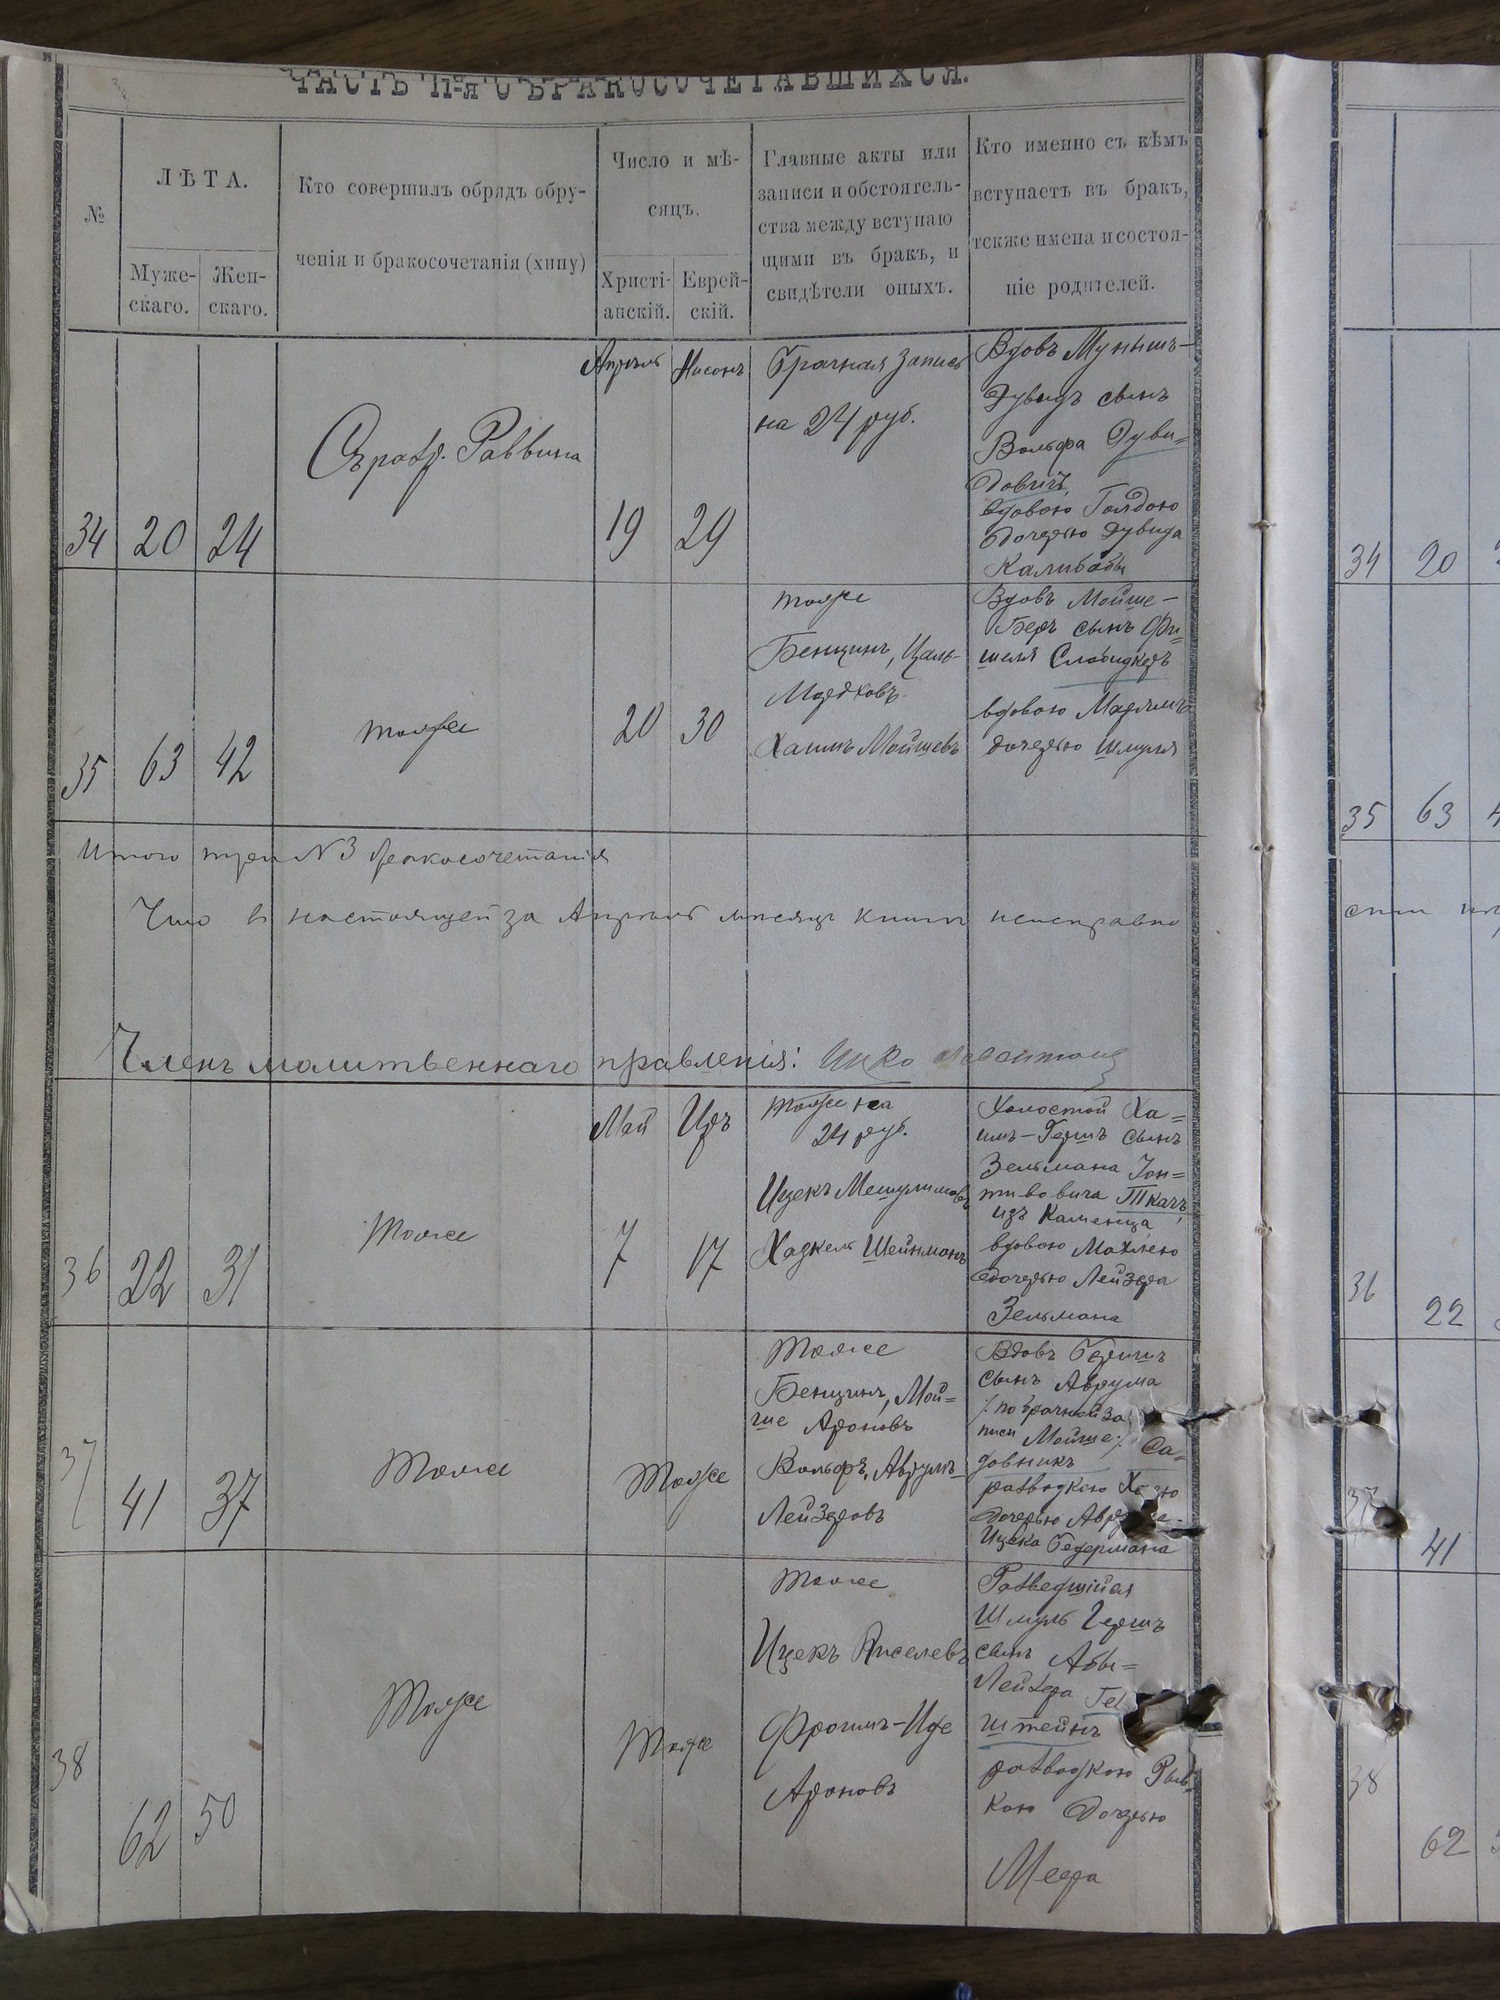 ЧАСТЬ II-я О БРАКОСОЧЕТАВШИХСЯ.
№
ЛѢТА.
Муже-
скаго.
Жен-
скаго.
Кто совершилъ обрядъ обру-
ченія и бракосочетанія (хупу)
Число и мѣ-
сяцъ.
Христі-
анскій.
Еврей-
скій.
Главные акты или
записи и обстоятель-
ства между вступаю
щими въ бракъ, и
свидѣтели оныхъ.
Кто именно съ кѣмъ
вступаетъ въ бракъ,
также имена и состоя-
ніе родителей.
34
20
24
Раввина
Апрѣль
19
Нисонъ
29
Брачная запись
на 24 руб.
Вдовъ Мунышъ-
Дувидъ сынъ
Вольфа Дуви=
довичъ,
вдовою Голдою
дочерью Дувида
35
63
42
тоже
20
30
тоже
Бенцинъ, Цаль-
Хаимъ Мойшевъ
Вдовъ Мойше-
Беръ сынъ Фи=
шеля Слободкеръ
вдовою
дочерью Шмуля
Итого три N3 бракосочетанія
Что в настоящей за Апрѣль мѣсяцъ книги неисправно
Членъ молитвеннаго правленія: Ицко
36
22
31
Тоже
Май
7
Иръ
17
Тоже на
24 руб.
Ицекъ Мешулимовъ
Хаскель Шейнманъ
Холостой Ха=
имъ-Гершъ сынъ
Зельмана Іон=
тивовича Ткачъ,
изъ Каменца
вдовою Махлею
дочерью Лейзера
Зельмана
37
41
37
Тоже
Тоже
Тоже
Бенцинъ, Мой=
ше Ароновъ
Вольфъ, Аврумъ-
Лейзеровъ
Вдовъ Гершъ
сынъ Аврума
/. по брачной за
писи Мойше ./ Са=
довникъ
разводкою
дочерью
Ицека Гедермана
38
62
50
Тоже
Тоже
Тоже
Ицекъ Киселевъ
Фроимъ-Иде
Ароновъ
Разведшійся
Шмуль Гершъ
сынъ Абы=
Лейзера Гел
штейнъ
разводкою Рыв=
кою дочерью
Меера
34
20
35
63
36
22
37
41
38
62